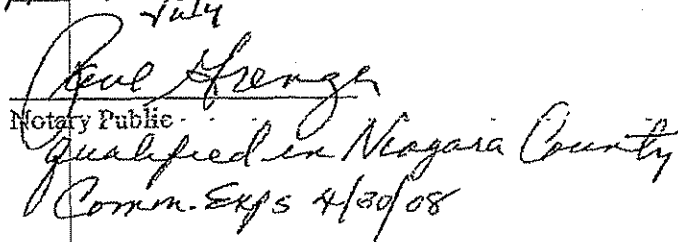 July
Notary Public
qualified in Niagara County
Comm. Exps 4/30/08